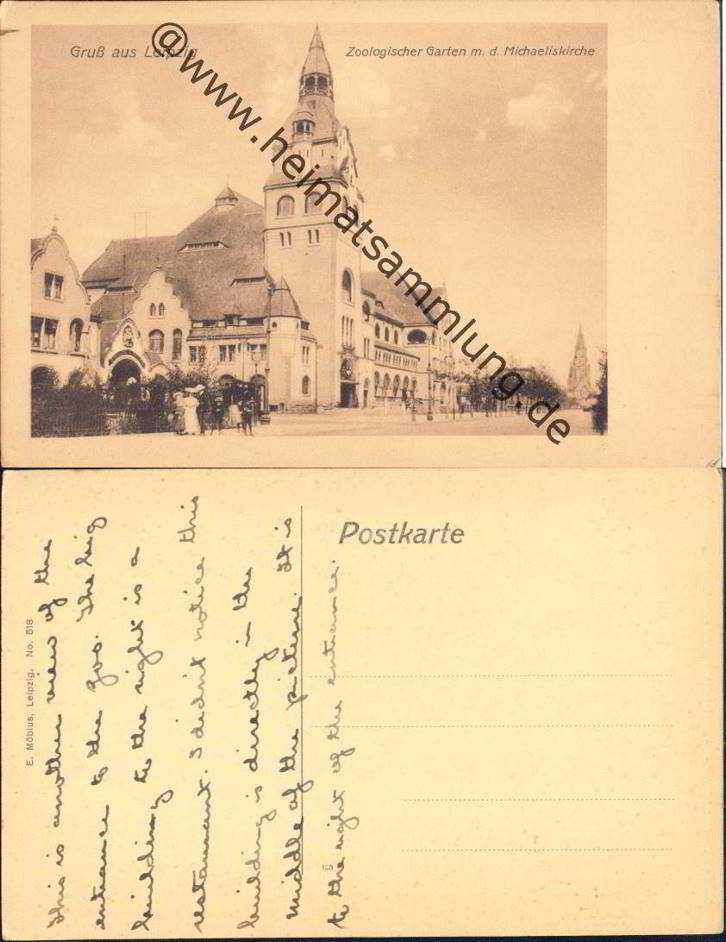 Gruß aus Leipzig
Zoologischer Garten m. d. Michaeliskirche
@www.heimatsammlung.de
Postkarte
E. Möbius, Leipzig. No. 518
This is another view of the
entrance to the zoo. The big
building to the right is a
restaurant. I didn't notice this
building is directly in the
middle of the picture. It is
to the right of the entrance.